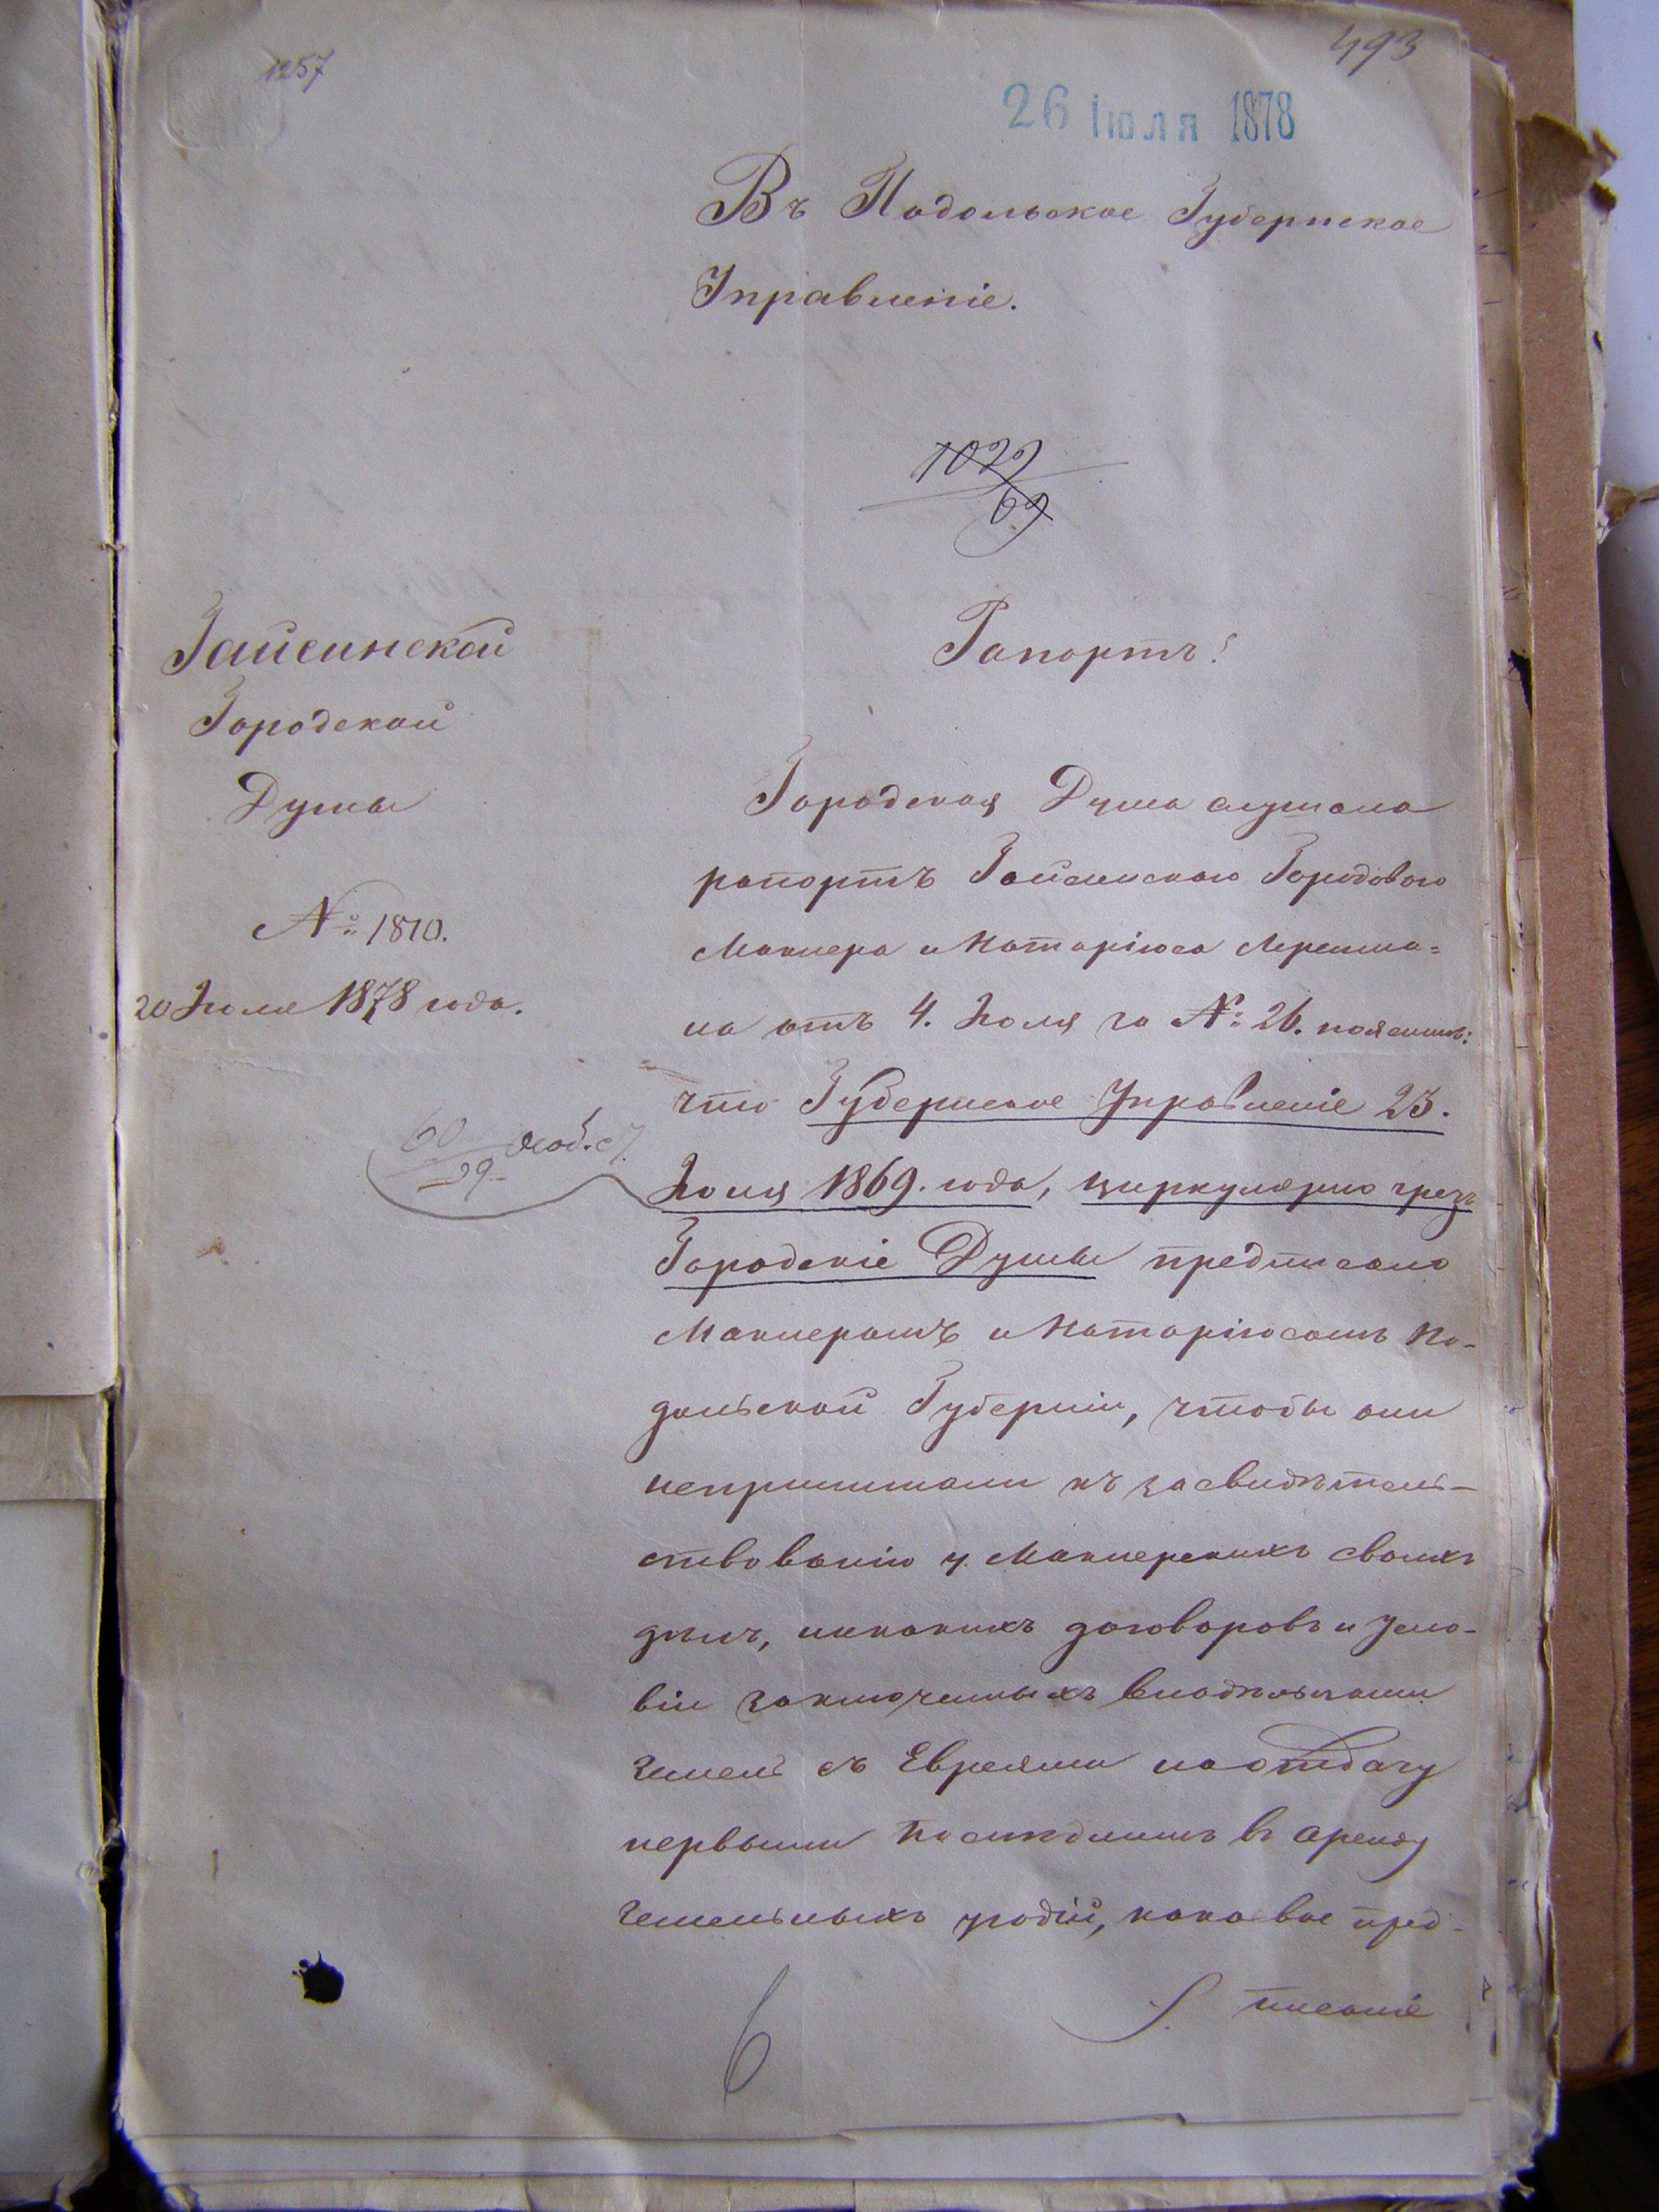 1257
493
26 Іюля 1878
Въ Подольское Губернское
Управленіе.
1022
69
Гайсинской
Городской
Думы
№ 1810.
20 Іюля 1878 года.
Рапортъ!
Городская Дума слушала
рапортъ Гайсинскаго Городоваго
Маклера и Нотаріюса
на отъ 4. Іюля за № 26.
что Губернское Управленіе 23.
60
29
Іюля 1869. года, циркулярно чрезъ
Городскіе Думы предписало
Маклерамъ и Нотаріюсамъ По-
дольской Губерніи, чтобы они
непринимали къ засвидѣтель-
ствованію у Маклерскихъ своихъ
дѣлъ, никакихъ договоровъ и усло-
віи заключенныхъ владѣльцами
земель съ Евреями на отдачу
первыми послѣднимъ в аренду
земельныхъ угодій, каковое пред-
писаніе
6